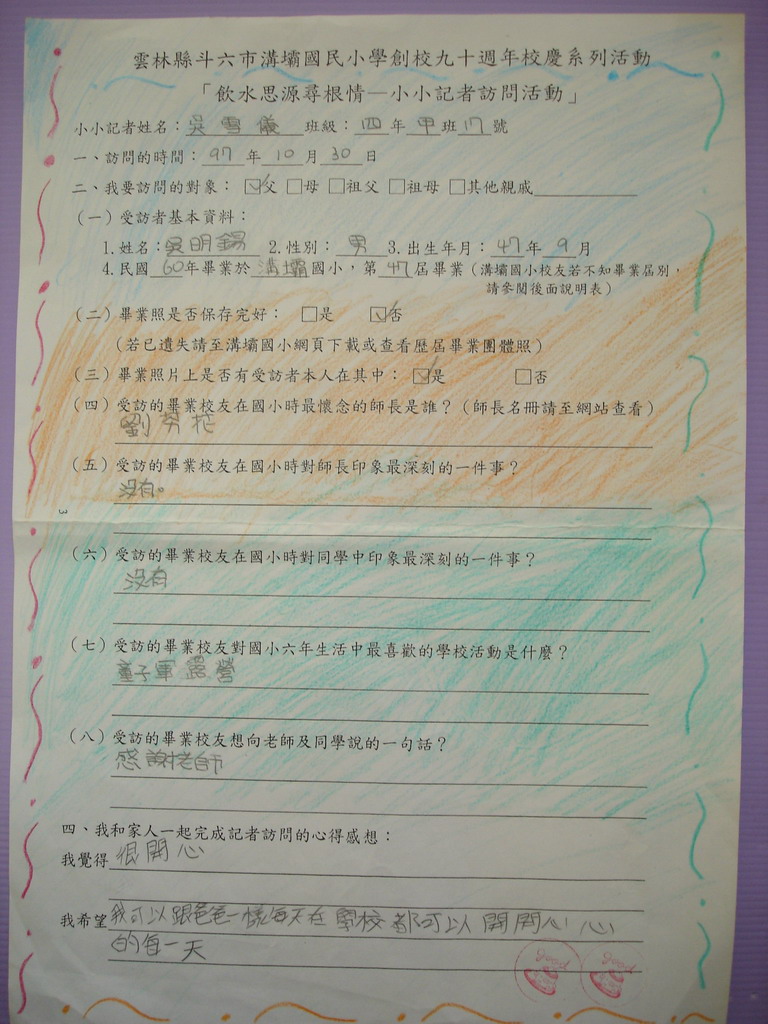 雲林縣斗六市溝壩國民小學創校九十週年校慶系列活動
「飲水思源尋根情—小小記者訪問活動」
小小記者姓名：吳雪儀 班級：四年甲班17號
一、訪問的時間：97年10月30日
二、我要訪問的對象：☑父 □母 □祖父 □祖母 □其他親戚
（一）受訪者基本資料：
1.姓名：吳明錫 2.性別：男 3.出生年月：47年9月
4.民國60年畢業於溝壩國小，第47屆畢業（溝壩國小校友若不知畢業屆別，
請參閱後面說明表）
（二）畢業照是否保存完好：□是 ☑否
（若已遺失請至溝壩國小網頁下載或查看歷屆畢業團體照）
（三）畢業照片上是否有受訪者本人在其中：☑是 □否
（四）受訪的畢業校友在國小時最懷念的師長是誰？（師長名冊請至網站查看）
劉
（五）受訪的畢業校友在國小時對師長印象最深刻的一件事？
沒有。
3
（六）受訪的畢業校友在國小時對同學中印象最深刻的一件事？
沒有
（七）受訪的畢業校友對國小六年生活中最喜歡的學校活動是什麼？
童子軍露營
（八）受訪的畢業校友想向老師及同學說的一句話？
感謝老師
四、我和家人一起完成記者訪問的心得感想：
我覺得很開心
我希望我可以跟爸爸一樣每天在學校都可以開開心心
的每一天
good good